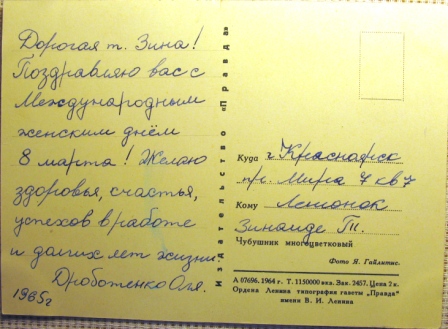 Дорогая т. Зина!
Поздравляю вас с
Международным
женским днём
8 марта! Желаю
здоровья, счастья,
успехов в работе
и долгих лет жизни.
Дроботенко Оля.
1965г
Издательство «Правда»
Куда г. Красноярск
пр. Мира 7 кв 7
Кому
Зинаиде
Чубушник многоцветковый
Фото Я. Гайлитис.
А 07696. 1964 г. Т. 1150000 экз. Зак. 2457. Цена 2 к.
Ордена Ленина типография газеты „Правда"
имени В. И. Ленина